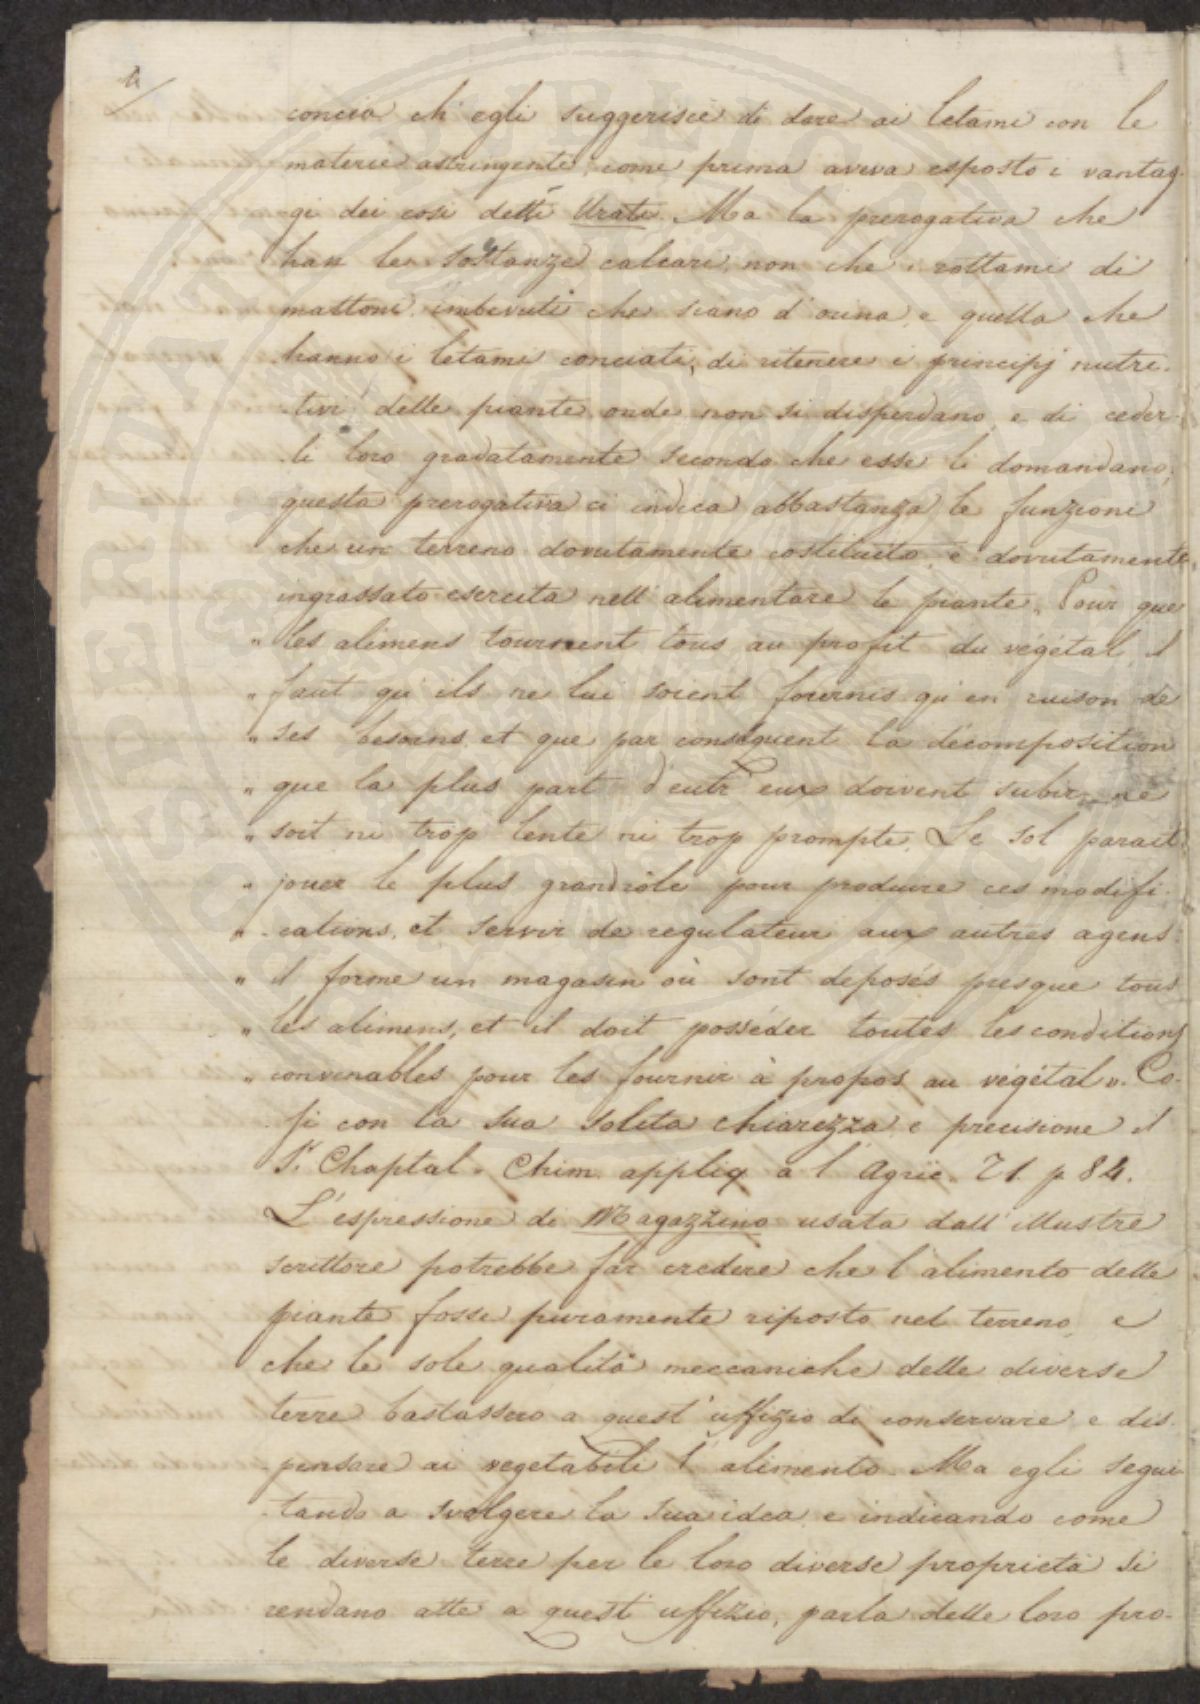 concia ch' egli suggerisce di dare ai letami con le
materie astringenti, come prima aveva esposto i vantag-
gi dei così detti Urati. Ma la prerogativa che
han le sostanze calcari, non che i rottami di
mattoni imbevuti che siano d'orina, e quella che
hanno i letami conciati, di ritenere i principj nutri-
tivi delle piante onde non si disperdano, e di ceder-
li loro gradatamente secondo che esse li domandano,
questa prerogativa ci indica abbastanza le funzioni
che un terreno dovutamente costituito, e dovutamente
ingrassato esercita nell' alimentare le piante. „ Pour que
„ les alimens tournent tous au profit du végétal, il
„ faut qu' ils ne lui soient fournis qu' en raison de
„ ses besoins, et que par conséquent la décomposition
„ que la plus part d'entr' eux doivent subir, ne
„ soit ni trop lente ni trop prompte. Le sol parait
„ jouer le plus grand rôle pour produire ces modifi-
„ cations, et servir de regulateur aux autres agens:
„ il forme un magasin où sont deposés presque tous
„ les alimens, et il doit posséder toutes les conditions
„ convenables pour les fournir à propos au végétal „. Co-
si con la sua solita chiarezza e precisione il
S.r Chaptal. Chim. appliq. a l' Agric. T1. p 84.
L'espressione di Magazzino usata dall' illustre
scrittore potrebbe far credere che l' alimento delle
piante fosse puramente riposto nel terreno, e
che le sole qualità meccaniche delle diverse
terre bastassero a quest' uffizio di conservare e dis-
pensare ai vegetabili l' alimento. Ma egli segui-
tando a svolgere la sua idea, e indicando come
le diverse terre per le loro diverse proprietà si
rendano atte a quest' uffizio, parla delle loro pro-